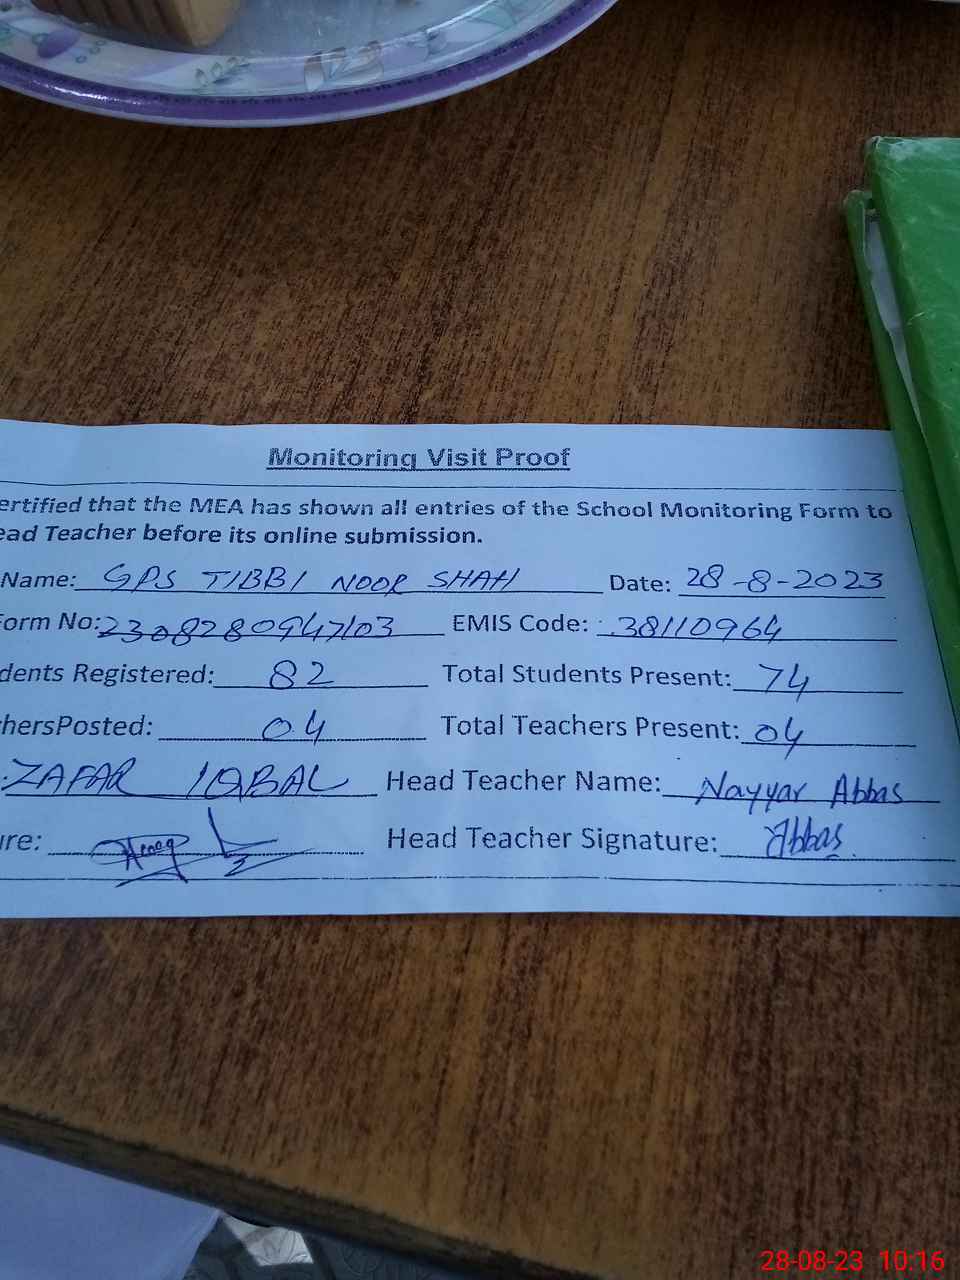 Monitoring Visit Proof
ertified that the MEA has shown all entries of the School Monitoring Form to
ead Teacher before its online submission.
Name: GPS TIBBI NOOR SHAH Date: 28-8-2023
orm No: 2308280947103 EMIS Code: 38110964
dents Registered: 82 Total Students Present: 74
hersPosted: 04 Total Teachers Present: 04
ZAFAR IQBAL Head Teacher Name: Nayyar Abbas
ure: Head Teacher Signature: Abbas
28-08-23 10:16